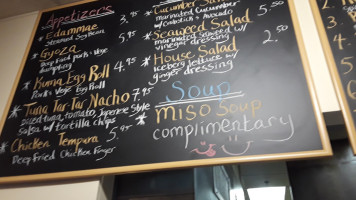 Appetizers
Edammae 3.95
Steamed Soy Bean
Gyoza 5.95
Deep Fried pork + Vege
dumpling
Kuma Egg Roll 4.95
Pork + Vege Egg Roll
Tuna Tar-Tar Nacho 7.95
diced tuna, tomato, Japanese style
Salsa w/ tortilla chips
Chicken Tempura 5.95
Deep Fried Chicken Finger
Cucumber
marinated Cucumber
w/ Crabstick + Avocado
Seaweed Salad 5.50
marinated seaweed w/
vinegar dressing
House Salad 2.50
Iceberg lettuce w/
ginger dressing
Soup
miso soup
complimentary